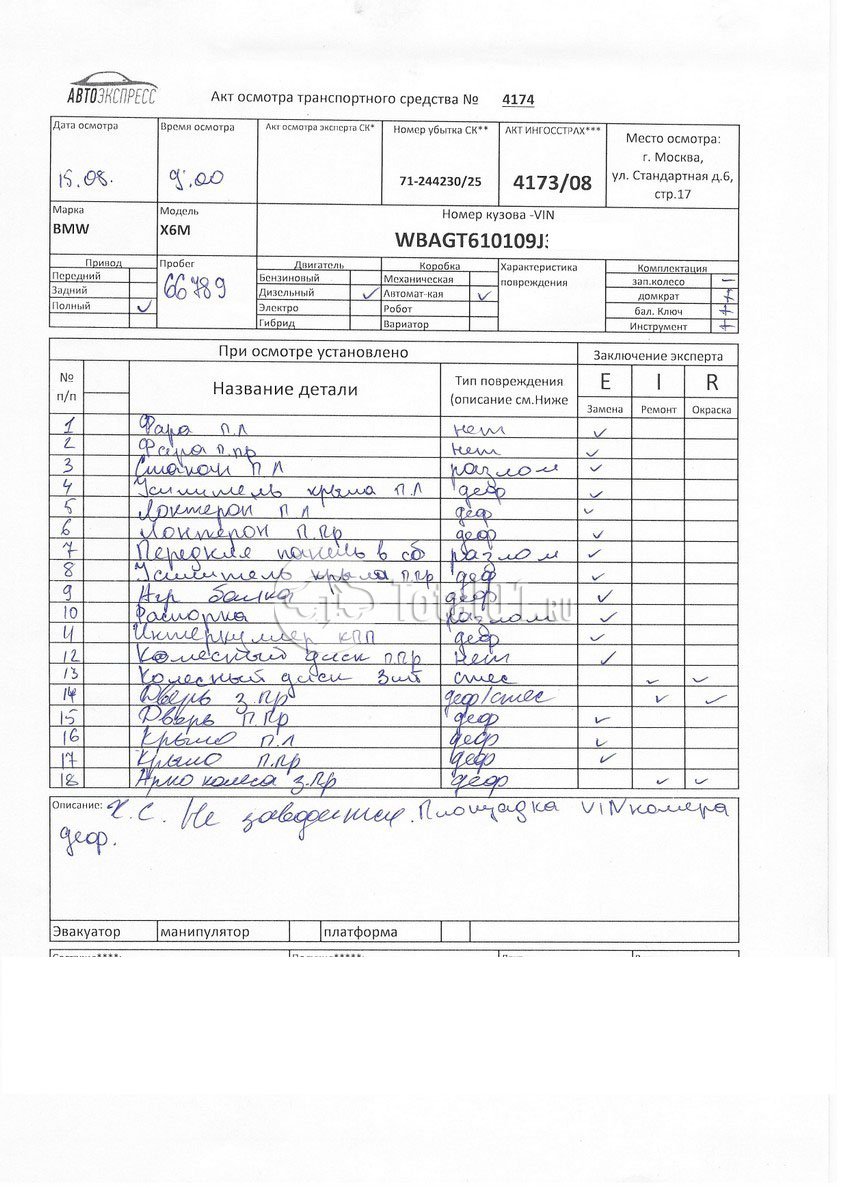 АВТОЭКСПРЕСС
Акт осмотра транспортного средства № 4174
Дата осмотра Время осмотра Акт осмотра эксперта СК* Номер убытка СК** АКТ ИНГОССТРАХ*** Место осмотра:
г. Москва,
15.08. 9.00 71-244230/25 4173/08 ул. Стандартная д.6,
стр.17
Марка Модель Номер кузова -VIN
BMW X6M WBAGT610109J
Привод Пробег Двигатель Коробка Характеристика Комплектация
Передний 66789 Бензиновый Механическая повреждения зап.колесо
Задний Дизельный ✓ Автомат-кая ✓ домкрат
Полный ✓ Электро Робот бал. Ключ
Гибрид Вариатор Инструмент
При осмотре установлено Заключение эксперта
№ п/п Название детали Тип повреждения (описание см.Ниже E I R
Замена Ремонт Окраска
1 Фара п.л нет ✓
2 Фара п.пр нет ✓
3 Стакан п л разлом ✓
4 Усилитель крыла п л деф ✓
5 Лонжерон п л деф ✓
6 Лонжерон п.пр деф ✓
7 Передняя панель в сб разлом ✓
8 Усилитель крыла п.пр деф ✓
9 балка деф ✓
10 Распорка разлом ✓
11 Интеркуллер КПП деф ✓
12 Колесный диск п.пр нет ✓
13 Колесный диск 3шт стес ✓ ✓
14 Дверь з.пр деф/стес ✓ ✓
15 Дверь п.пр деф ✓
16 Крыло п.л деф ✓
17 Крыло п.пр деф ✓
18 Арка колеса з.пр деф ✓ ✓
TotAl01.RU
Описание: Х.С. Не заводится. Площадка VIN номера
деф.
Эвакуатор манипулятор платформа